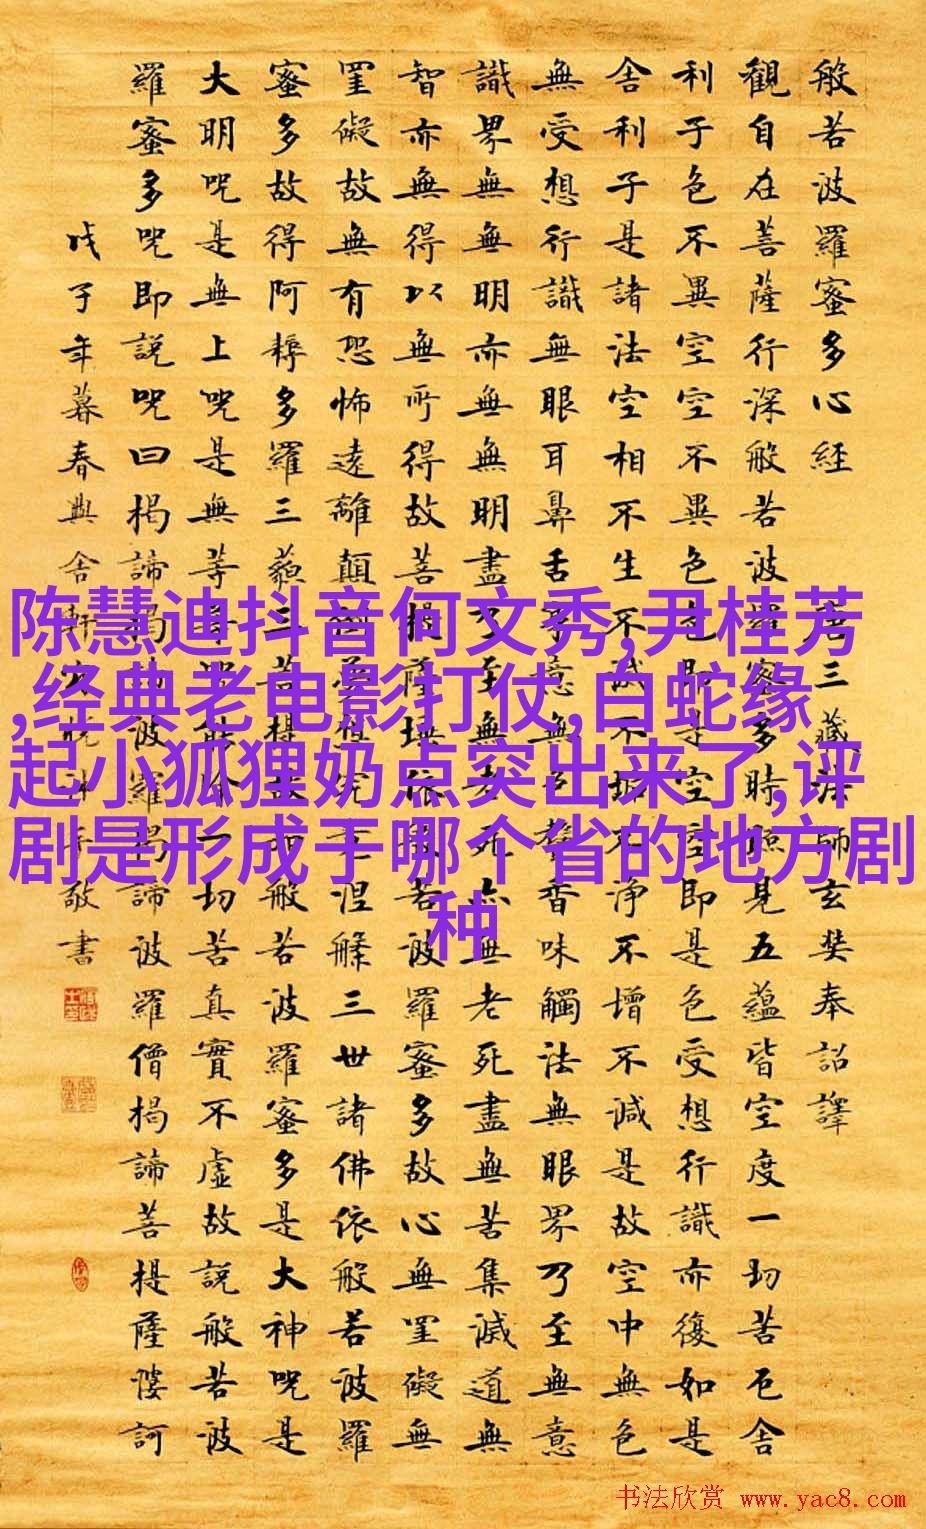 般若波羅蜜多心經 唐三藏法師玄奘奉詔譯
觀自在菩薩行深般若波羅蜜多時照見五蘊皆空度一切苦厄舍
利子色不異空空不異色色即是空空即是色受想行識亦復如是
舍利子是諸法空相不生不滅不垢不淨不增不減是故空中無色
無受想行識無眼耳鼻舌身意無色聲香味觸法無眼界乃至無意
識界無無明亦無無明盡乃至無老死亦無老死盡無苦集滅道無
智亦無得以無所得故菩提薩埵依般若波羅蜜多故心無罣礙無
罣礙故無有恐怖遠離顛倒夢想究竟涅槃三世諸佛依般若波羅
蜜多故得阿耨多羅三藐三菩提故知般若波羅蜜多是大神咒是
大明咒是無上咒是無等等咒能除一切苦真實不虛故說般若波
羅蜜多咒即說咒曰揭諦揭諦波羅揭諦波羅僧揭諦菩提薩婆訶
戊子年暮春 敬書
陈慧迪抖音何文秀,尹桂芳
,经典老电影打仗,白蛇缘
起小狐狸奶点突出来了,评
剧是形成于哪个省的地方剧
种
书法欣赏 www.yac8.com